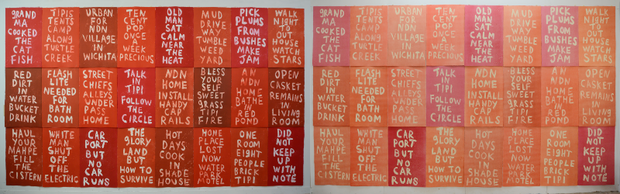 GRAND
MA
COOKED
THE
CAT
FISH
TIPIS
TENTS
CAMP
AT
TURTLE
CREEK
URBAN
FOR
NDN
VILLAGE
IN
WICHITA
TEN
CENT
POP
ONCE
WEEK
PRECIOUS
OLD
MAN
SAT
CALM
NEAR
THE
HEAT
MUD
DRIVE
WAY
TUMBLE
WEED
YARD
PICK
PLUMS
FROM
BUSHES
MAKE
JAM
WALK
NIGHT
TO
OUT
HOUSE
WATCH
STARS
RED
DIRT
IN
WATER
BUCKET
DRINK
FLASH
LITE
NEEDED
FOR
BATH
ROOM
STREET
CHIEFS
ALLEYS
UNDER
PASS
HOME
TALK
A
TIPI
FOLLOW
A
CIRCLE
NDN
HOME
INSTALL
HANDY
CAP
RAILS
BLESS
YOUR
SELF
SWEET
GRASS
TIPI
FIRE
AN
NDN
HOME
BATHE
IN
RED
POND
OPEN
CASKET
REMAINS
IN
LIVING
ROOM
HAUL
YOUR
MAHPE
FILL
THE
CISTERN
WHITE
MAN
SHUT
OFF
THE
ELECTRIC
CAR
PORT
BUT
NO
CAR
RUNS
THE
GLORY
LAND
BUT
HOW TO
SURVIVE
HOT
DAYS
COOK
IN
SHADE
HOUSE
HOME
PLACE
LOST
NOW
WATER
PARK
MOTEL
ONE
ROOM
EIGHT
PEOPLE
BRICK
TIPI
DID
NOT
KEEP
UP
WITH
NOTE
GRAND
MA
COOKED
THE
CAT
FISH
TIPIS
TENTS
CAMP
AT
TURTLE
CREEK
URBAN
FOR
NDN
VILLAGE
IN
WICHITA
TEN
CENT
POP
ONCE
WEEK
PRECIOUS
OLD
MAN
SAT
CALM
NEAR
THE
HEAT
MUD
DRIVE
WAY
TUMBLE
WEED
YARD
PICK
PLUMS
FROM
BUSHES
MAKE
JAM
WALK
NIGHT
TO
OUT
HOUSE
WATCH
STARS
RED
DIRT
IN
WATER
BUCKET
DRINK
FLASH
LITE
NEEDED
FOR
BATH
ROOM
STREET
CHIEFS
ALLEYS
UNDER
PASS
HOME
TALK
A
TIPI
FOLLOW
A
CIRCLE
NDN
HOME
INSTALL
HANDY
CAP
RAILS
BLESS
YOUR
SELF
SWEET
GRASS
TIPI
FIRE
AN
NDN
HOME
BATHE
IN
RED
POND
OPEN
CASKET
REMAINS
IN
LIVING
ROOM
HAUL
YOUR
MAHPE
FILL
THE
CISTERN
WHITE
MAN
SHUT
OFF
THE
ELECTRIC
CAR
PORT
BUT
NO
CAR
RUNS
THE
GLORY
LAND
BUT
HOW TO
SURVIVE
HOT
DAYS
COOK
IN
SHADE
HOUSE
HOME
PLACE
LOST
NOW
WATER
PARK
MOTEL
ONE
ROOM
EIGHT
PEOPLE
BRICK
TIPI
DID
NOT
KEEP
UP
WITH
NOTE